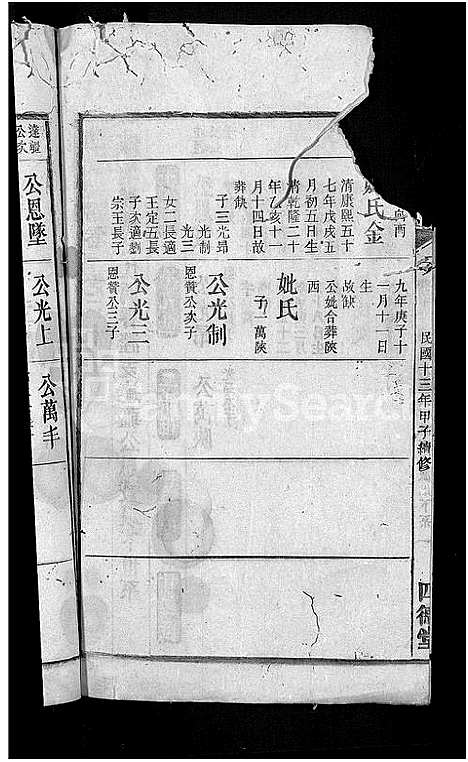 氏金
清康熙五十
七年戊戌五
月初五日生
清乾隆二十
年乙亥十一
月十四日故
葬缺
子三光昂
光制
光三
女二長適
王定五長
子次適劉
宗王長子
九年庚子十
一月十一日
生
故缺
丕妣合葬陝
西
妣氏
子一萬陝
公光制
恩賛公次子
公光三
恩賛公三子
民國十三年甲子續修
四德堂
公恩墜
公光上
公萬手
FamilySearch